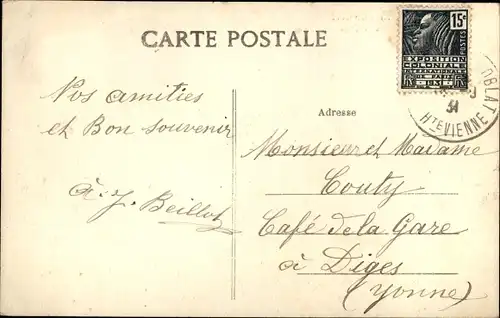 CARTE POSTALE
15c
POSTES
EXPOSITION
COLONIALE
INTERNATIONALE
DE PARIS
1931
31
OBLAT
HTE VIENNE
Nos amitiés
et Bon souvenir
J. Beillot
Adresse
Monsieur et Madame
Couty
Café de la Gare
à Diges
(Yonne)